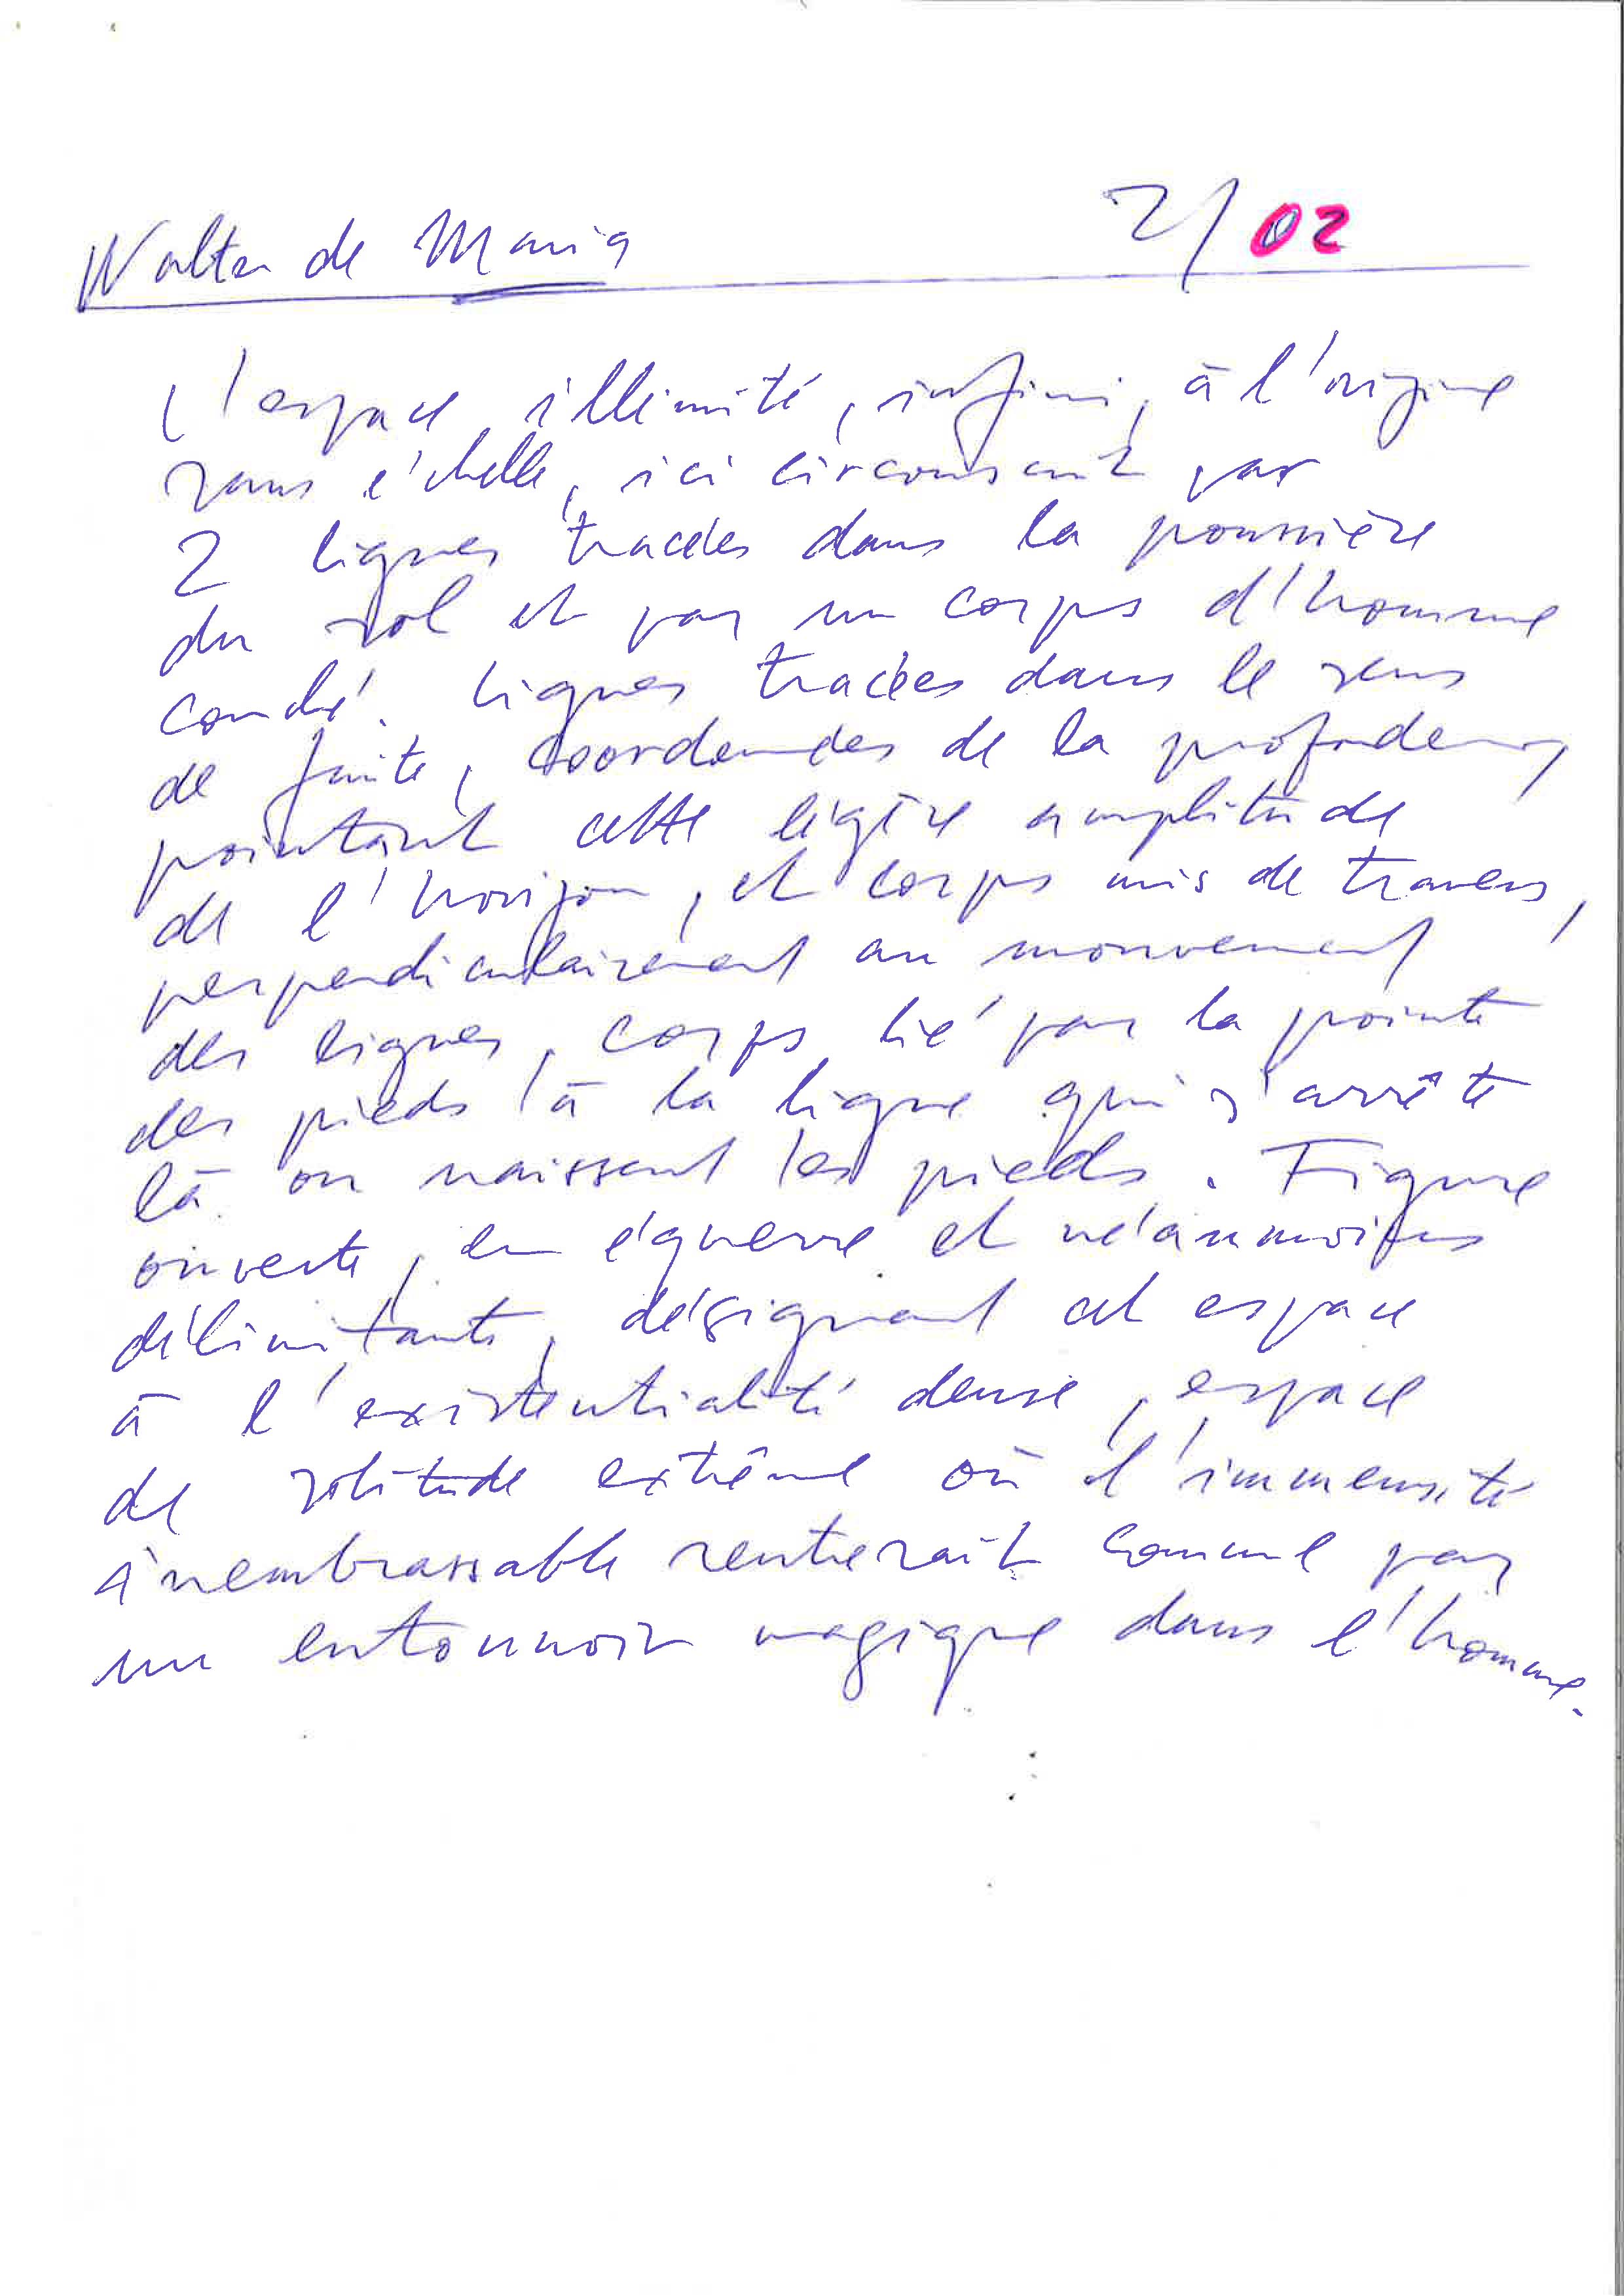 Walter de Maria 2/02
L'espace illimité, infini, à l'origine
sans échelle, ici circonscrit par
2 lignes tracées dans la poussière
du sol et par un corps d'homme
couché. Lignes tracées dans le sens
de fuite, coordonnées de la profondeur,
pointant cette légère amplitude
de l'horizon, et corps mis de travers,
perpendiculairement au mouvement
des lignes, corps lié par la pointe
des pieds à la ligne qui s'arrête
là où naissent les pieds. Figure
ouverte, en équerre et néanmoins
délimitante, désignant cet espace
à l'existentialité dense, espace
de solitude extrême où l'immensité
inembrassable rentrerait comme par
un entonnoir magique dans l'homme.